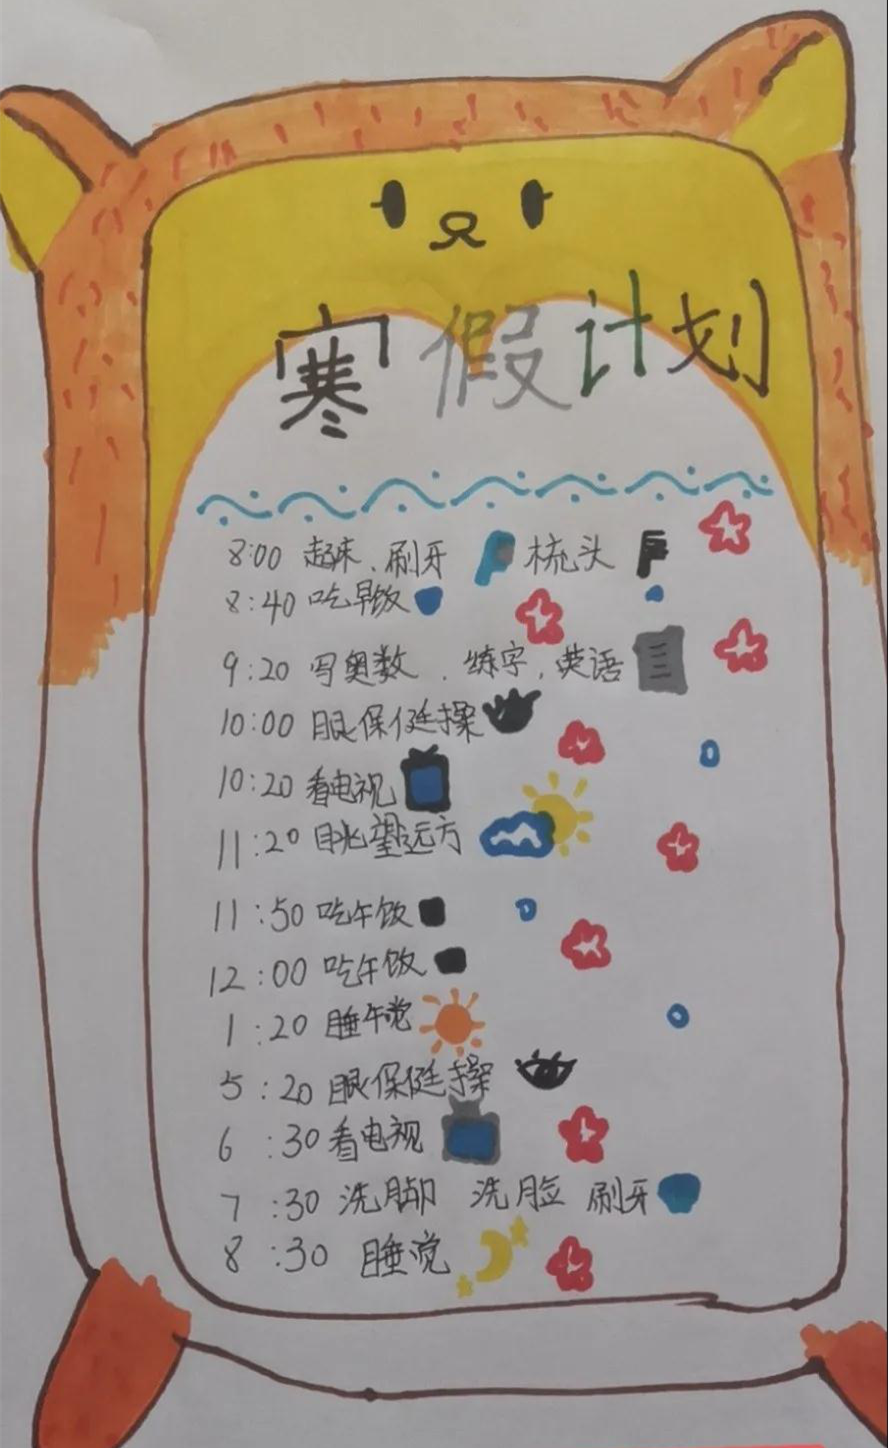 寒假计划
8:00 起床、刷牙 梳头
8:40 吃早饭
9:20 写奥数、练字,英语
10:00 眼保健操
10:20 看电视
11:20 眺望远方
11:50 吃午饭
12:00 吃午饭
1:20 睡午觉
5:20 眼保健操
6:30 看电视
7:30 洗脚 洗脸 刷牙
8:30 睡觉